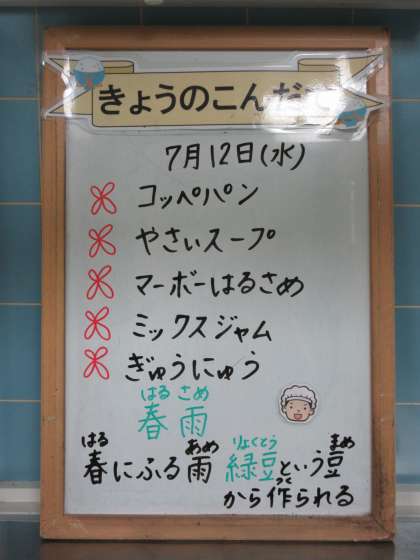 きょうのこんだて
7月12日(水)
コッペパン
やさいスープ
マーボーはるさめ
ミックスジャム
ぎゅうにゅう
はる さめ
春 雨
はる あめ りょくとう まめ
春にふる雨 緑豆という豆
つく
から作られる